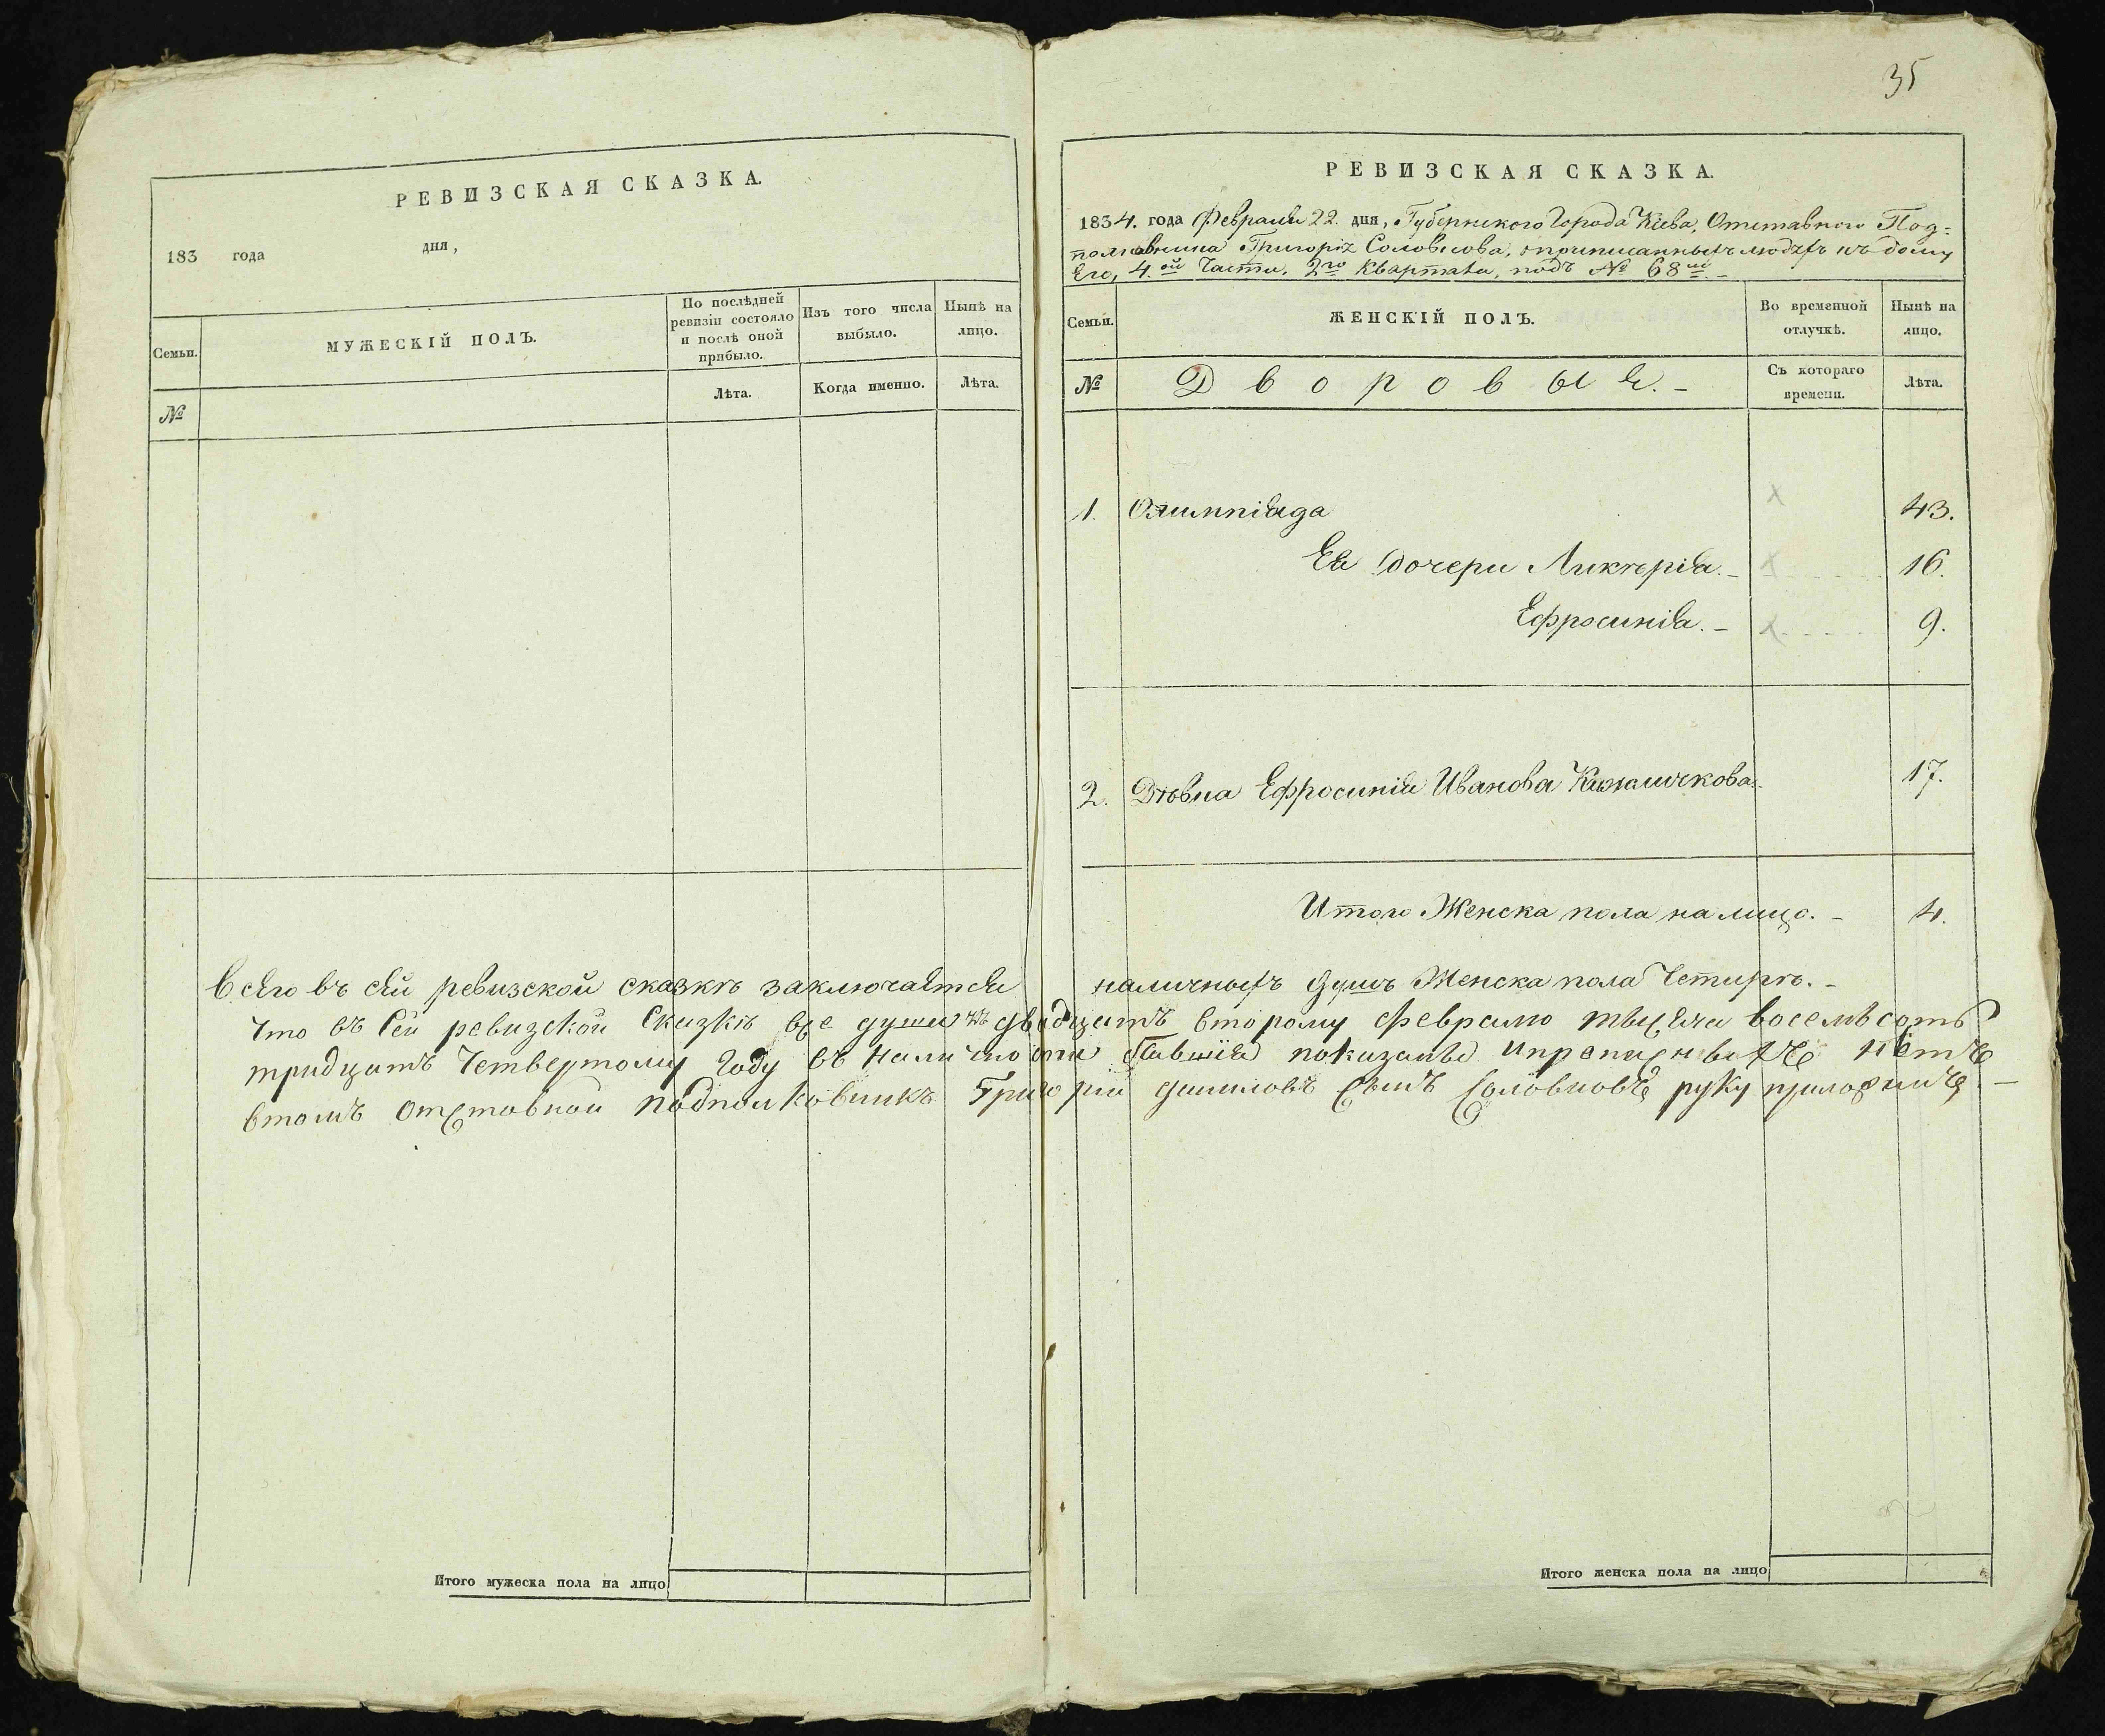 35
РЕВИЗСКАЯ СКАЗКА.
183 года дня,
Семьи.
МУЖЕСКІЙ ПОЛЪ.
По послѣдней
ревизіи состояло
и послѣ оной
прибыло.
Изъ того числа
выбыло.
Нынѣ на
лицо.
№
Лѣта.
Когда именно.
Лѣта.
РЕВИЗСКАЯ СКАЗКА.
1834. года Февраля 22. дня, Губернскаго Города Кіева, Отставнаго Под=
полковника Григорія Соловкова, о приписанныхъ людяхъ къ дому
Его, 4.ой Части, 2го Квартала, подъ № 68мъ.-
Семьи.
ЖЕНСКІЙ ПОЛЪ.
Во временной
отлучкѣ.
Нынѣ на
лицо.
№
Дворовыя.-
Съ котораго
времени.
Лѣта.
1. Олимпіяда 43.
Ея Дочери Ликѣрія.- 16.
Ефросинія.- 9.
2. Дѣвка Ефросинія Иванова 17.
Итого Женска пола на лицо.- 4.
Всего въ сей ревизской сказкѣ заключается наличныхъ душъ Женска пола Четыре.-
Что въ Сей ревизской Сказкѣ все души двадцать второму февралю тысяча восемьсотъ
тридцать Четвертому Году въ Наличности бывшия показаны и прописныхъ нетъ
втомъ отставной подполковникъ Григорий сынъ Соловковъ руку приложилъ.-
Итого мужеска пола на лицо
Итого женска пола на лицо